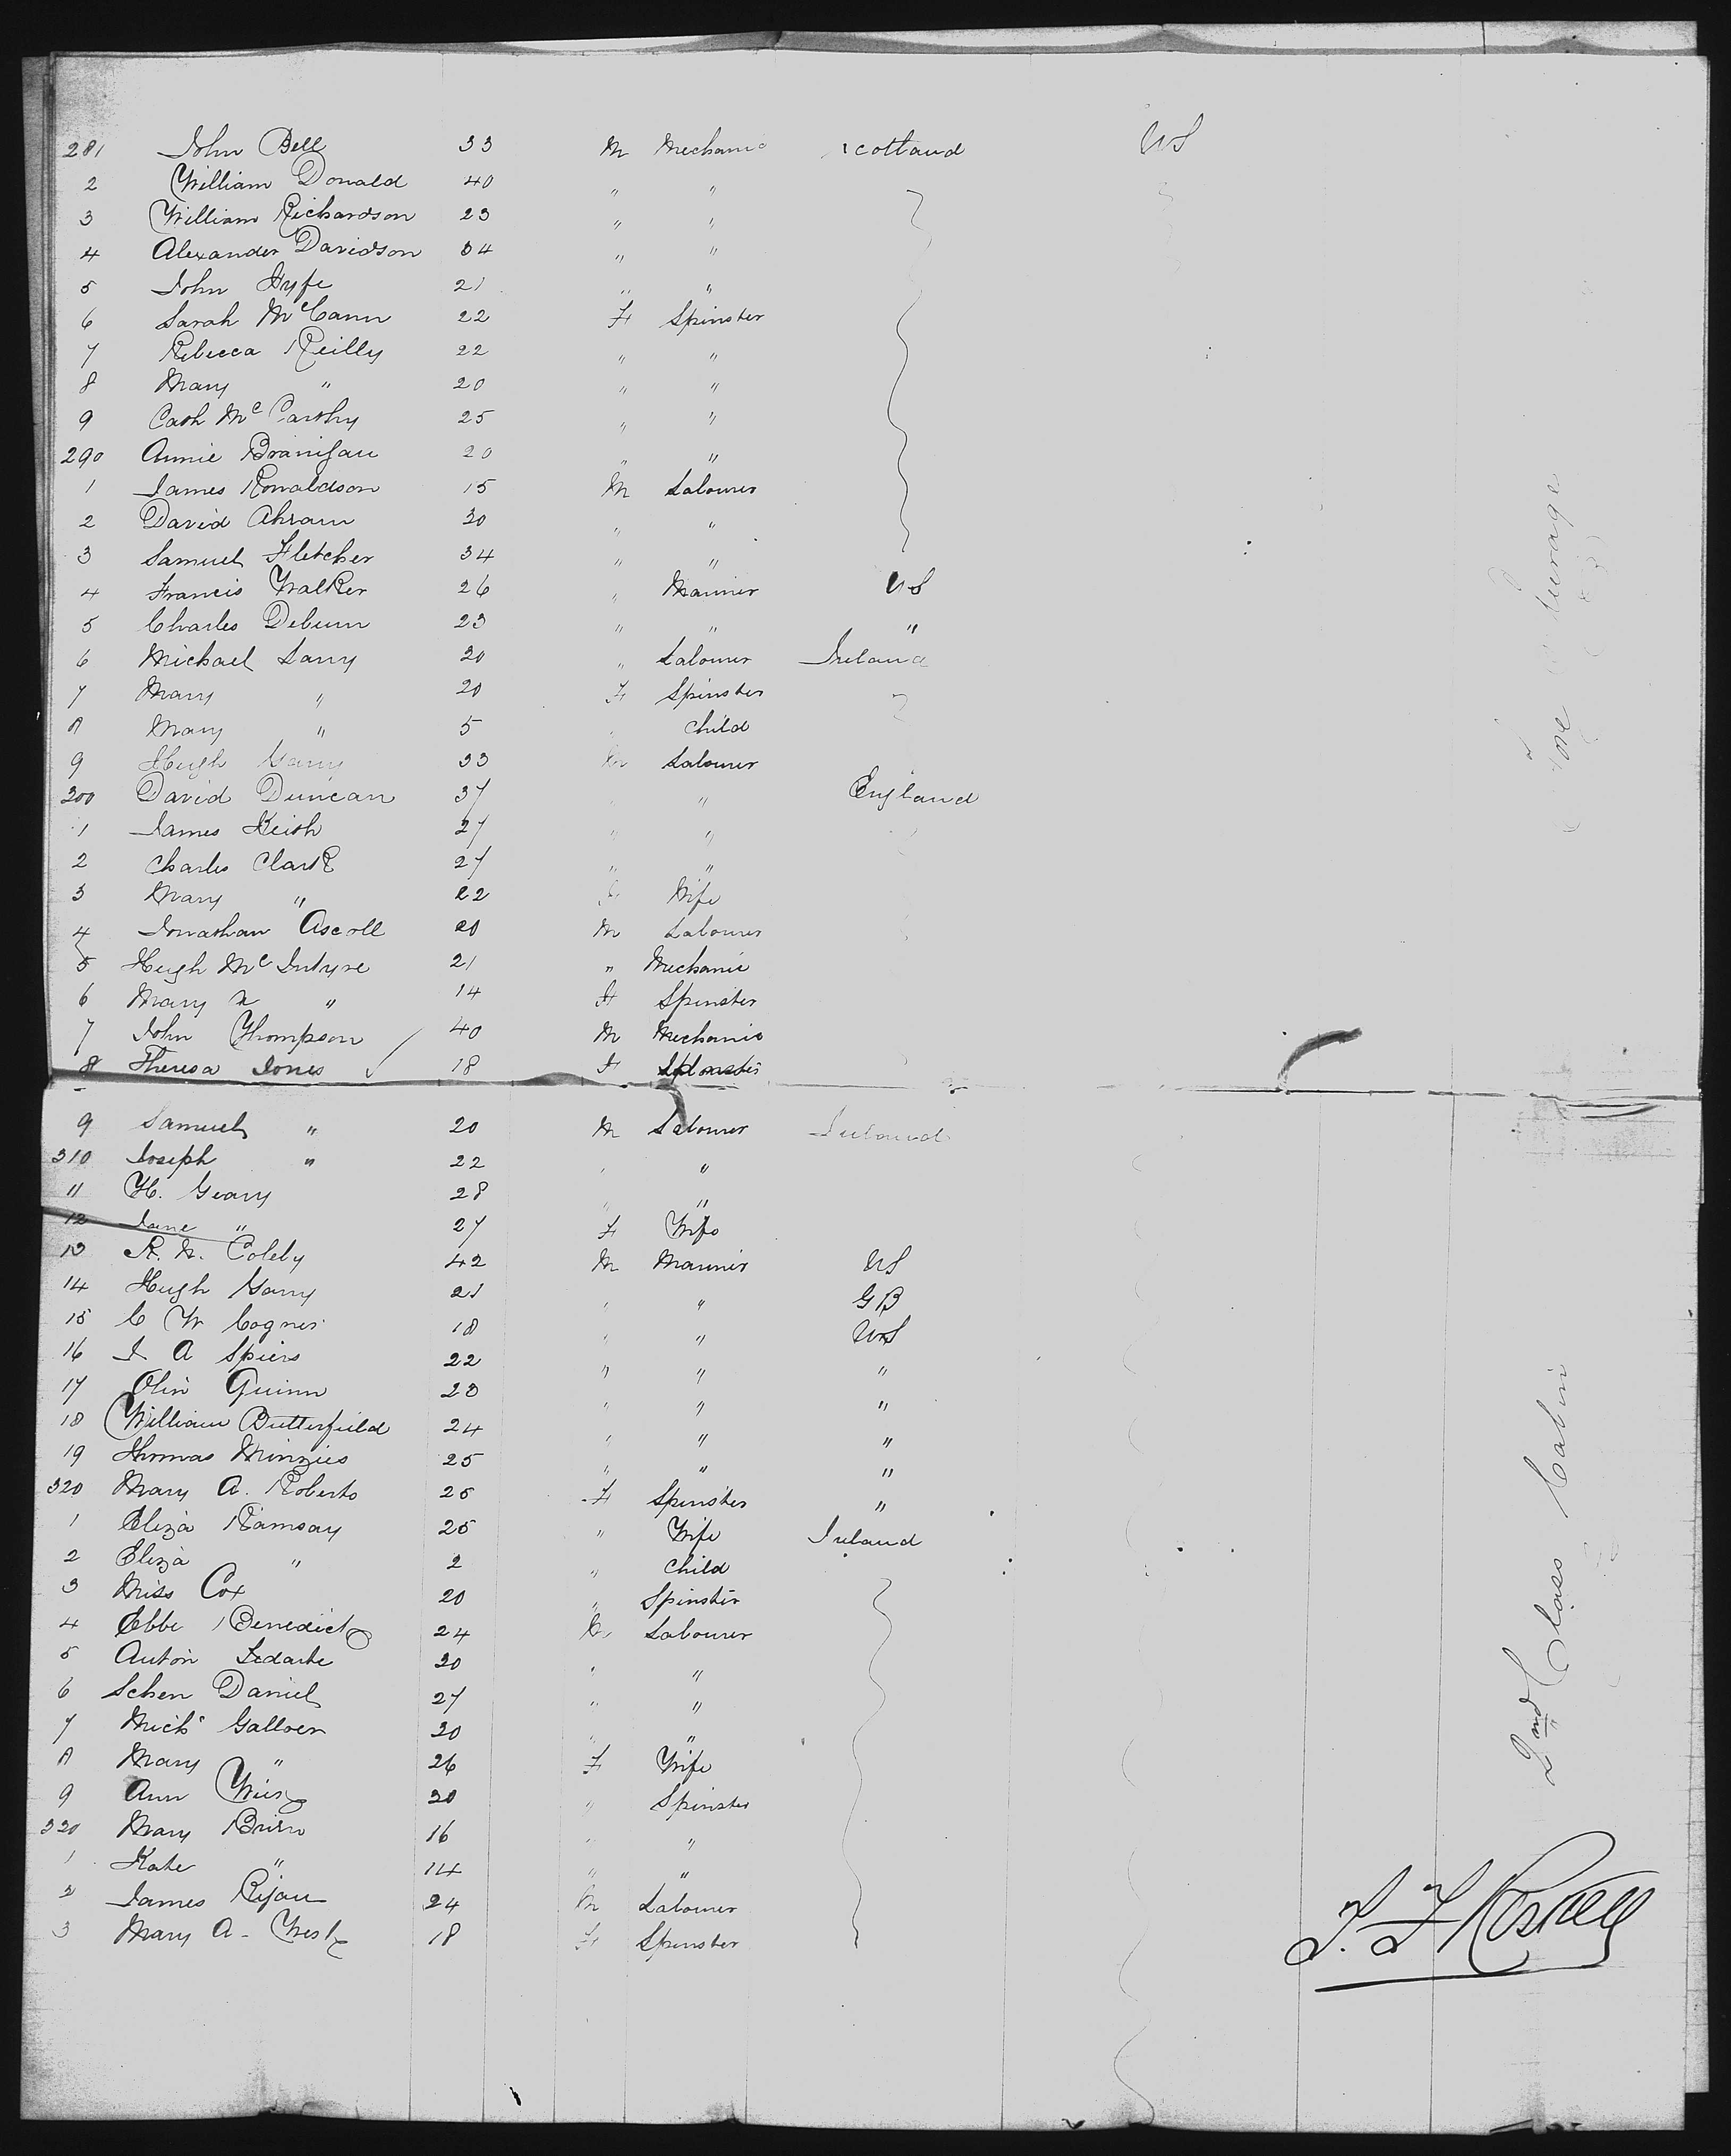 281 John Bell 33 M Mechanic Scotland US
2 William Donald 40 " "
3 William Richardson 23 " "
4 Alexander Davidson 34 " "
5 John Fyfe 21 " "
6 Sarah McCann 22 F Spinster
7 Rebecca Reilly 22 " "
8 Mary " 20 " "
9 Cath McCarthy 25 " "
290 Annie Branigan 20 " "
1 James Ronaldson 15 M Labourer
2 David Ahram 30 " "
3 Samuel Fletcher 34 " "
4 Francis Walker 26 " Mariner US
5 Charles 23 " " "
6 Michael 20 " Labourer Ireland
7 Mary " 20 F Spinster
8 Mary " 5 " Child
9 Hugh Garry 33 M Labourer
300 David Duncan 37 " " England
1 James Keith 27 " "
2 Charles Clark 27 " "
3 Mary " 22 F Wife
4 Jonathan Ascoll 20 M Labourer
5 Hugh McIntyre 21 " Mechanic
6 Mary " 14 F Spinster
7 John Thompson 40 M Mechanic
8 Theresa Jones 18 F Spinster
9 Samuel " 20 M Labourer Ireland
310 Joseph " 22 " "
11 H. Geary 28 " "
12 Jane " 27 F Wife
13 R. N. Coleby 42 M Mariner US
14 Hugh Garry 21 " " GB
15 C W Cogner 18 " " US
16 J A Spiers 22 " " "
17 Olin Quinn 20 " " "
18 William Butterfield 24 " " "
19 Thomas Minzies 25 " " "
320 Mary A. Roberts 25 F Spinster "
1 Eliza Ramsay 25 " Wife Ireland
2 Eliza " 2 " Child
3 Miss Cox 20 " Spinster
4 Ebbe Benedict 24 M Labourer
5 Anton 30 " "
6 Schen Daniel 27 " "
7 Mich Galloen 30 " "
8 Mary " 26 F Wife
9 Ann 30 " Spinster
330 Mary Brien 16 " "
1 Kate " 14 " "
2 James Ryan 24 M Labourer
3 Mary A. West 18 F Spinster
2nd Class Cabin